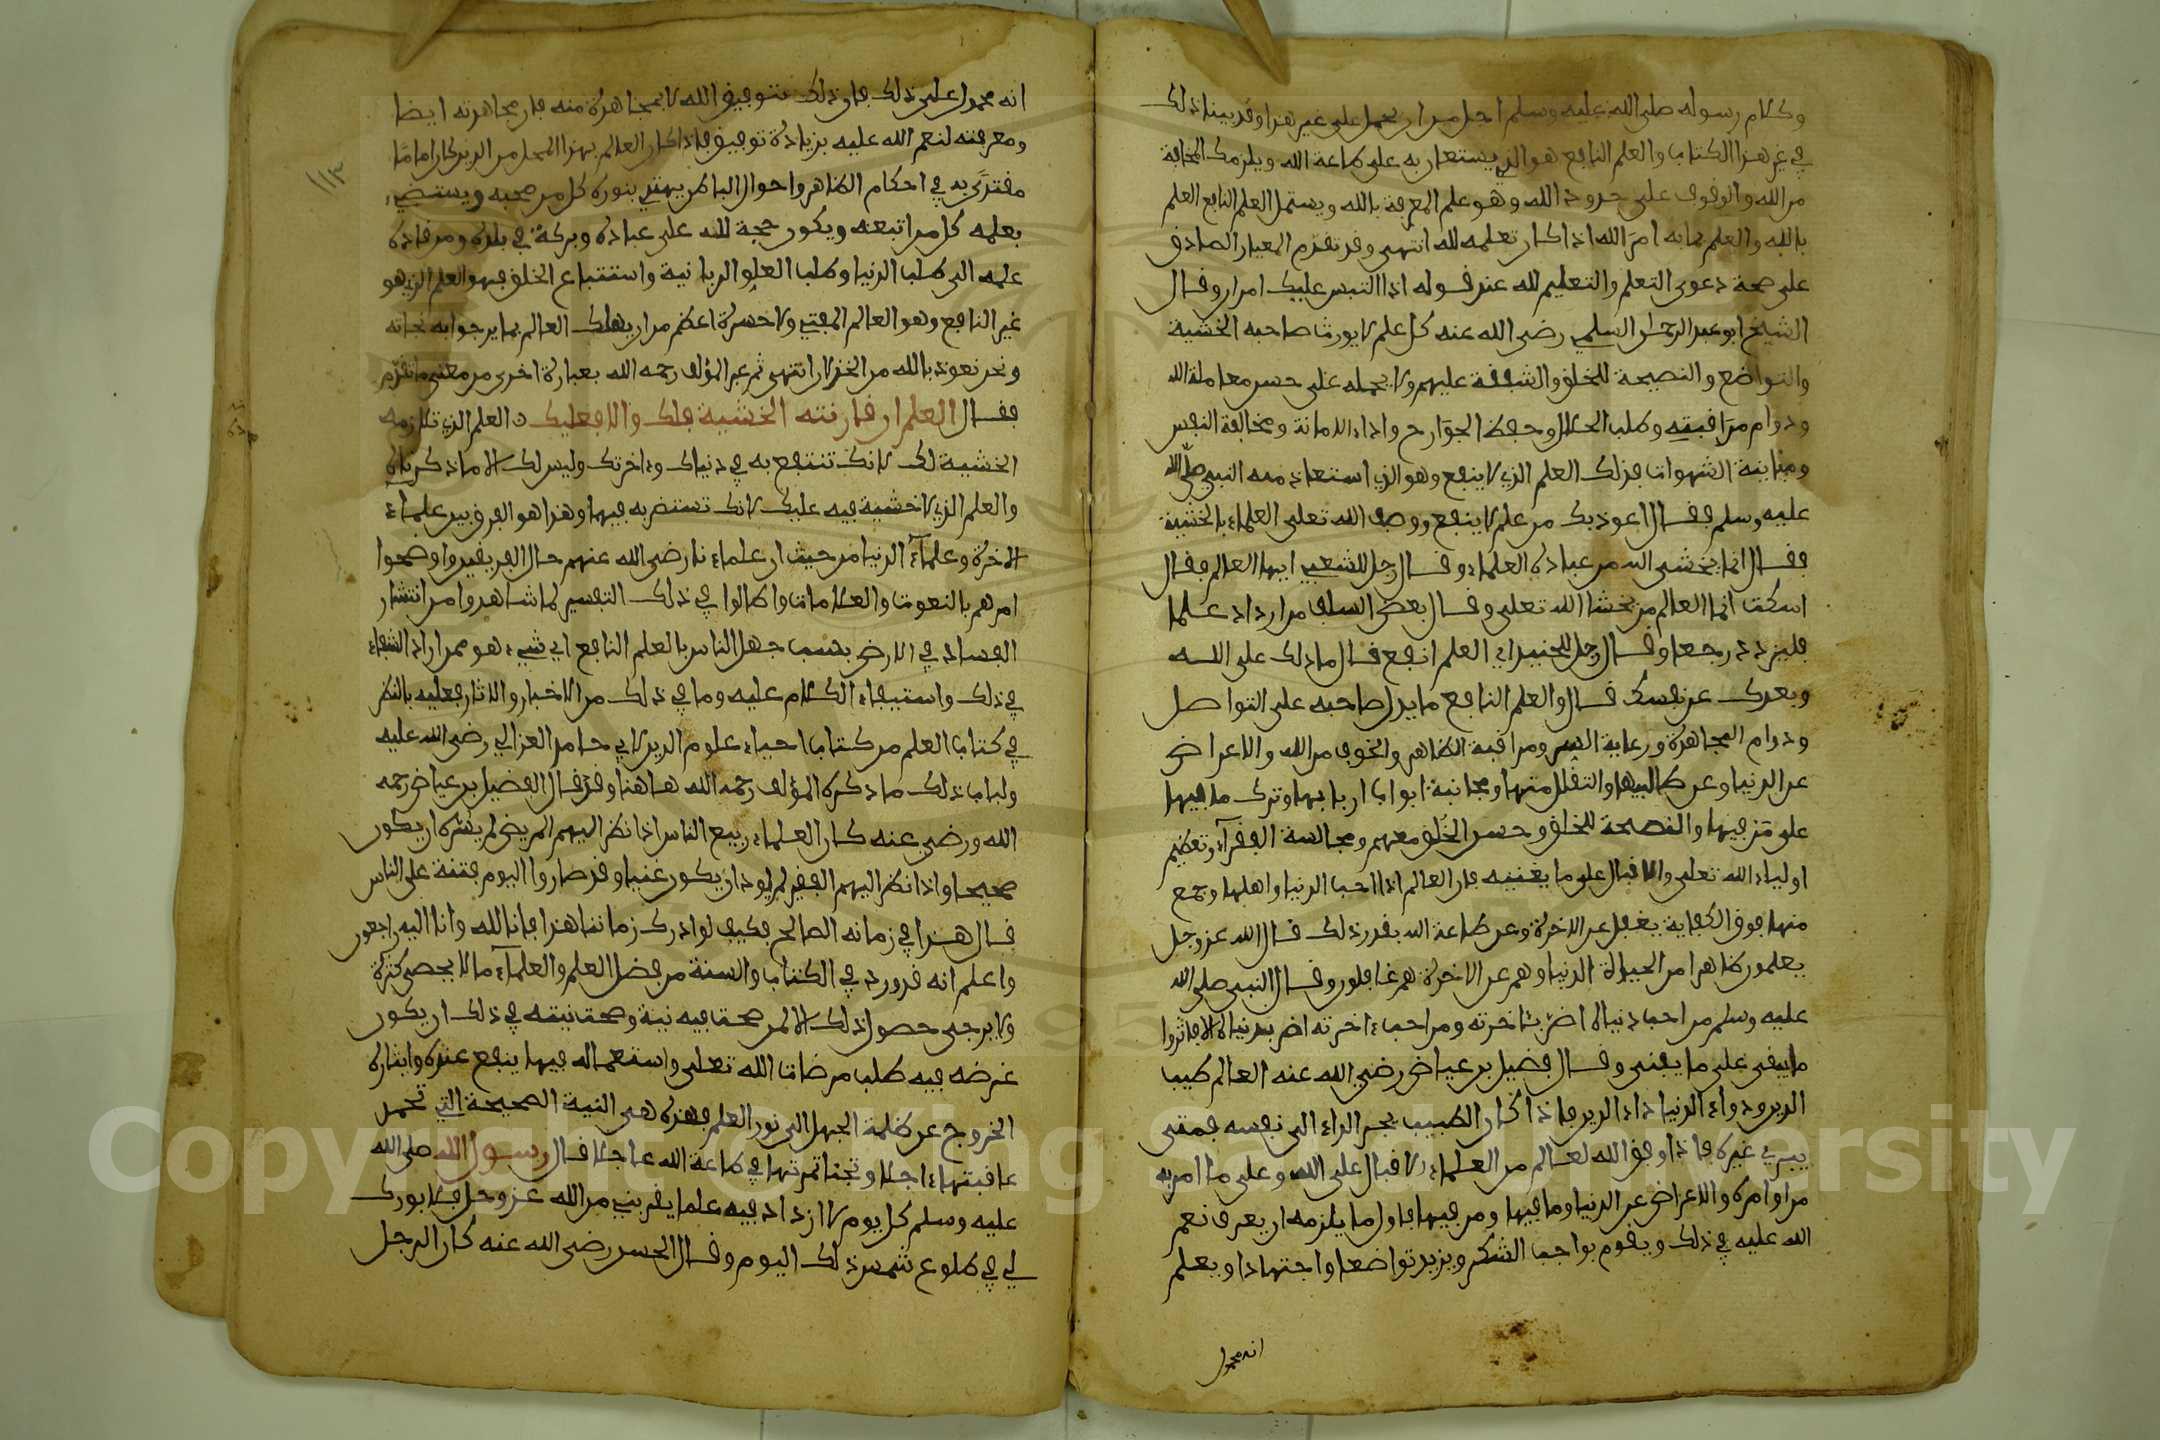 وكلام رسوله صلى الله عليه وسلم اجل من ان يحمل على غير هذا وقد بينا ذلك
في غير هذا الكتاب والعلم النافع هو الذي يستعان به على طاعة الله ويلزمك المخافة
من الله والوقوف على حدود الله وهو علم المعرفة بالله ويشمل العلم النافع العلم
بالله والعلم بما به امر الله اذا كان تعلمه لله انتهى وقد تقدم المعيار الصادق
على صحة دعوى التعلم والتعليم لله عند قوله اذا التبس عليك امران وقال
الشيخ ابو عبد الرحمن السلمي رضى الله عنه كل علم لا يورث صاحبه الخشية
والتواضع والنصيحة للخلق والشفقة عليهم ولا يحمله على حسن معاملة الله
ودوام مراقبته وطلب الحلال وحفظ الجوارح واداء الامانة ومخالفة النفس
ومباينة الشهوات فذلك العلم الذي لا ينفع وهو الذي استعاذ منه النبي صلى الله
عليه وسلم فقال اعوذ بك من علم لا ينفع ووصف الله تعلى العلماء بالخشية
فقال انما يخشى الله من عباده العلماء وقال رجل للشعبي ايها العالم فقال
اسكت انما العالم من يخشا الله تعلى وقال بعض السلف من ازداد علما
فليزدد وجعا وقال رجل للجنيد اي العلم انفع قال ما دلك على الله
وبعدك عن نفسك قال والعلم النافع ما يدل صاحبه على التواصل
ودوام المجاهدة ورعاية السر ومراقبة الظاهر والخوف من الله والاعراض
عن الدنيا وعن طالبيها والتقلل منها ومجانبة ابواب اربابها وترك ما فيها
على من فيها والنصحة للخلق وحسن الخلق معهم ومجالسة الفقرآء وتعظيم
اولياء الله تعلى والاقبال على ما يعنيه فان العالم اذا احب الدنيا واهلها وجمع
منها فوق الكفاية يغفل عن الاخرة وعن طاعة الله بقدر ذلك قال الله عز وجل
يعلمون ظاهرا من الحياة الدنيا وهم عن الاخرة هم غافلون وقال النبي صلى الله
عليه وسلم من احب دنياه اضر بئاخرته ومن احب ءاخرته اضر بدنياه الا فاثروا
ما يبقى على ما يفنى وقال فضيل بن عياض رضي الله عنه العالم طبيب
الدين ودواء الدنيا داء الدين فاذا كان الطبيب يجر الداء الى نفسه فمتى
يبري غيره فاذا وفق الله لعالم من العلماء الاقبال على الله وعلى ما امر به
من اوامره والاعراض عن الدنيا وما فيها ومن فيها فاول ما يلزمه ان يعرف نعم
الله عليه في ذلك ويقوم بواجب الشكر ويزيد تواضعا واجتهادا ويعلم
انه محمول
انه محمول على ذلك فان ذلك بتوفيق الله لا بمجاهدة منه فان مجاهدته ايضا
ومعرفته لنعم الله عليه بزيادة توفيق فاذا كان العالم بهذا المحل من الدين كان اماما
مقتدى به في احكام الظاهر واحوال الباطن يهتدي بنوره كل من صحبه ويستضيء
بعلمه كل من اتبعه ويكون حجة لله على عباده وبركة في بلده ومن قاده
علمه الى طلب الدنيا وطلب العلو الربانية واستتباع الخلق فهو العلم الذي هو
غير النافع وهو العالم المفتي ولا حسرة اعظم من ان يهلك العالم بما يرجوا به نجاته
ونحن نعوذ بالله من الخذلان انتهى ثم عبر المؤلف رحمه الله بعبارة اخرى من معنى ما تقدم
فقال العلم ان قارنته الخشية فلك والا فعليك العلم الذي تلازمه
الخشية لك لانك تنتفع به في دنياك وءاخرتك وليس لك الا ما ذكرناه
والعلم الذي لا خشية فيه عليك لانك تستضر به فيهما وهذا هو الفرق بين علماء
الاخرة وعلمآء الدنيا من حيث ان علماءنا رضى الله عنهم حال الفريقين واوضحوا
امرهم بالنعوت والعلامات واطالوا في ذلك التفسير لما شاهدوا من انتشار
الفساد في الارض بسبب جهل الناس بالعلم النافع اي شيء هو فمن اراد الشفاء
في ذلك واستيفاء الكلام عليه وما في ذلك من الاخبار والاثار فعليه بالنظر
في كتاب العلم من كتاب احياء علوم الدين لابي حامد الغزالي رضى الله عليه
ولباب ذلك ما ذكره المؤلف رحمه الله هاهنا وقد قال الفضيل بن عياض رحمه
الله ورضي عنه كان العلماء ربيع الناس اذا نظر اليهم المريض لم يسره ان يكون
صحيحا واذا نظر اليهم الفقير لم يود ان يكون غنيا وقد صاروا اليوم فتنة على الناس
قال هذا في زمانه الصالح فكيف لو ادرك زماننا هذا فانا لله وانا اليه راجعون
واعلم انه قد ورد في الكتاب والسنة من فضل العلم والعلمآء ما لا يحصى كثرة
ولا يرجى حصول ذلك الا لمن صحت فيه نية وصحت نيته في ذلك ان يكون
غرضه فيه طلب مرضات الله تعلى واستعماله فيما ينفع عنده وايثاره
الخروج عن ظلمة الجهل الى نور العلم فهذه هى النية الصحيحة التي تحمد
عاقبتها ءاجلا وتجنا ثمرتها في طاعة الله عاجلا قال رسول الله صلى الله
عليه وسلم كل يوم لا ازداد فيه علما يقربني من الله عز وجل فلا بورك
لي في طلوع شمس ذلك اليوم وقال الحسن رضى الله عنه كان الرجل
١١٣
Copyright © King Saud University